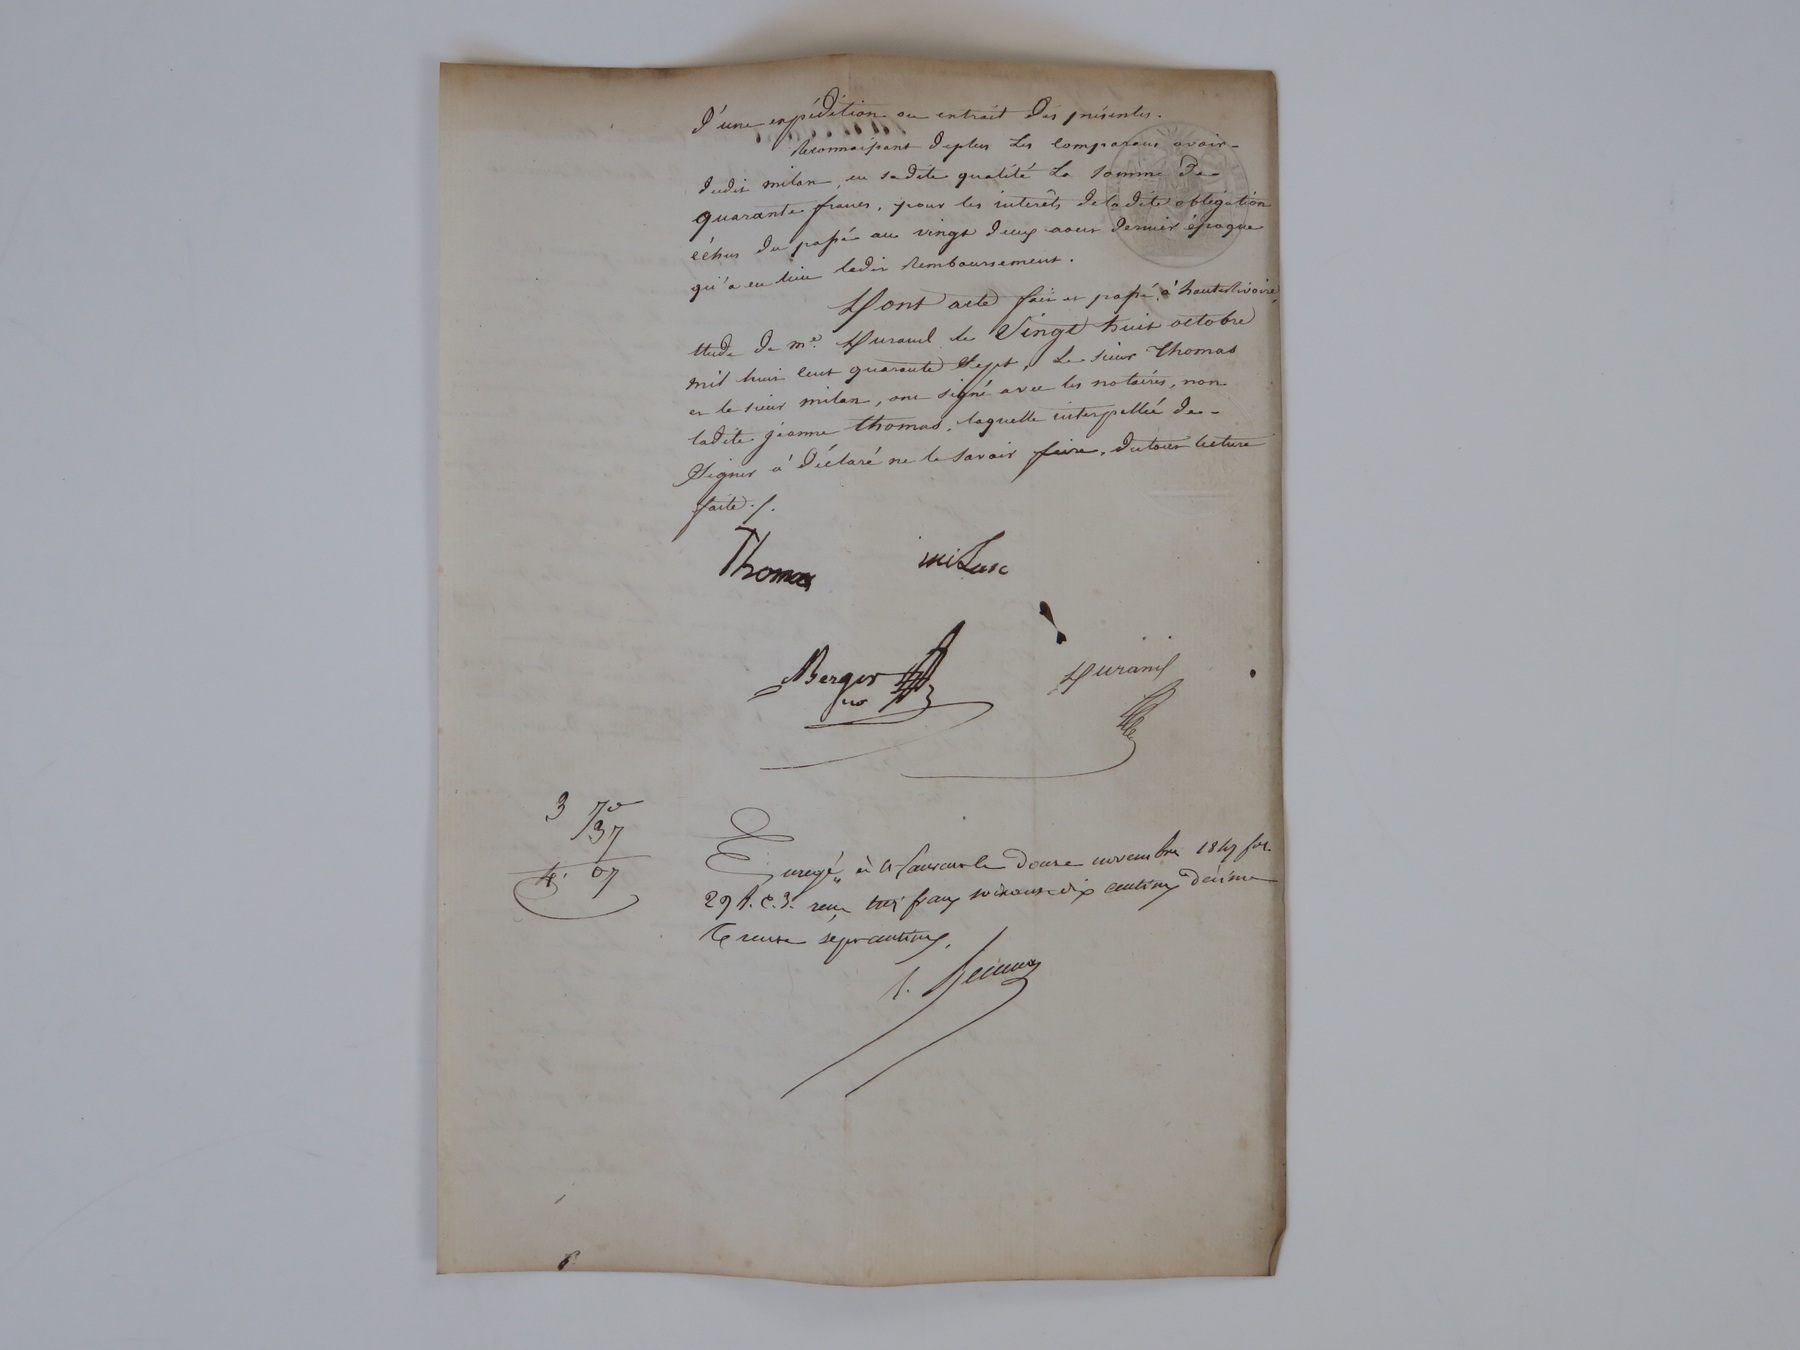 d'une expédition ou extrait des présentes.
Reconnaissant deplus les comparans avoir
dudit milan, en sadite qualité la somme de
quarante francs, pour les intérêts deladite obligation
échus du passé au vingt deux aout dernier époque
qu'a eu lieu ledit remboursement.
Dont acte fait et passé, à hauterivoire,
étude de me. Duranil le vingt huit octobre
mil huit cent quarante sept, Le sieur Thomas
et le sieur milan, ont signé avec les notaires, non
ladite jeanne thomas, laquelle interpellée de
signer a déclaré ne le savoir faire, dutout lecture
faite ./.
Thomas milan
Berger Duranil
no
3 70
37
4 07
Enregé à St Laurent le douze novembre 1847 fol.
29 R. C. 3. reçu trois francs soixante dix centimes décime
trente sept centimes.